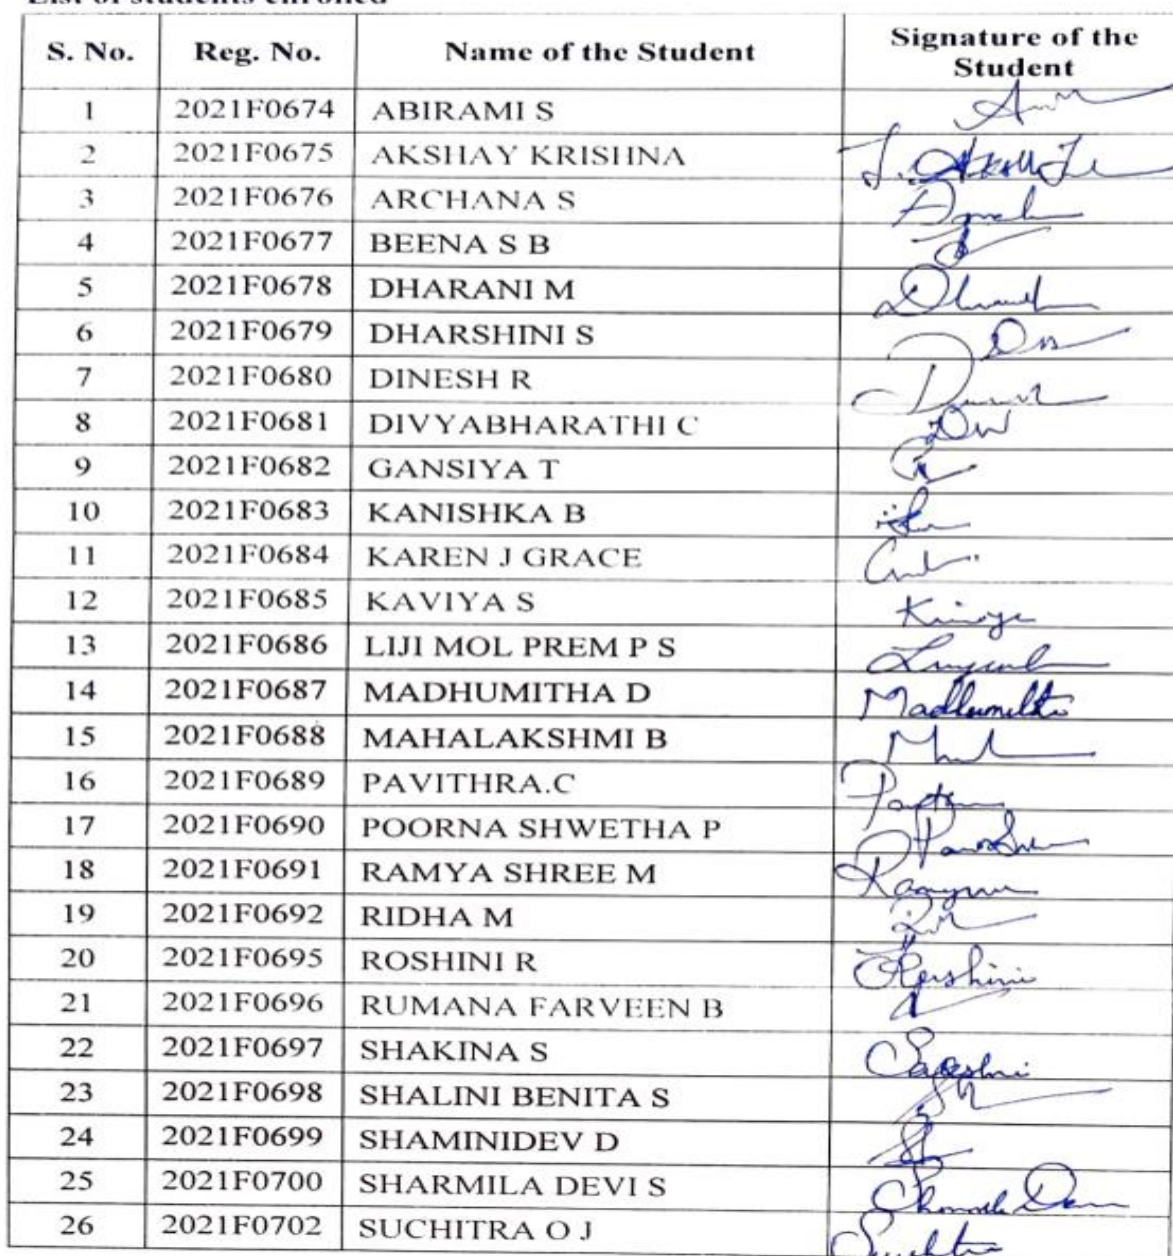 List of students enrolled
S. No. Reg. No. Name of the Student Signature of the Student
1 2021F0674 ABIRAMI S
2 2021F0675 AKSHAY KRISHNA
3 2021F0676 ARCHANA S
4 2021F0677 BEENA S B
5 2021F0678 DHARANI M
6 2021F0679 DHARSHINI S
7 2021F0680 DINESH R
8 2021F0681 DIVYABHARATHI C
9 2021F0682 GANSIYA T
10 2021F0683 KANISHKA B
11 2021F0684 KAREN J GRACE
12 2021F0685 KAVIYA S
13 2021F0686 LIJI MOL PREM P S
14 2021F0687 MADHUMITHA D Madhumitha
15 2021F0688 MAHALAKSHMI B
16 2021F0689 PAVITHRA.C
17 2021F0690 POORNA SHWETHA P
18 2021F0691 RAMYA SHREE M
19 2021F0692 RIDHA M
20 2021F0695 ROSHINI R Roshini
21 2021F0696 RUMANA FARVEEN B
22 2021F0697 SHAKINA S
23 2021F0698 SHALINI BENITA S
24 2021F0699 SHAMINIDEV D
25 2021F0700 SHARMILA DEVI S
26 2021F0702 SUCHITRA O J